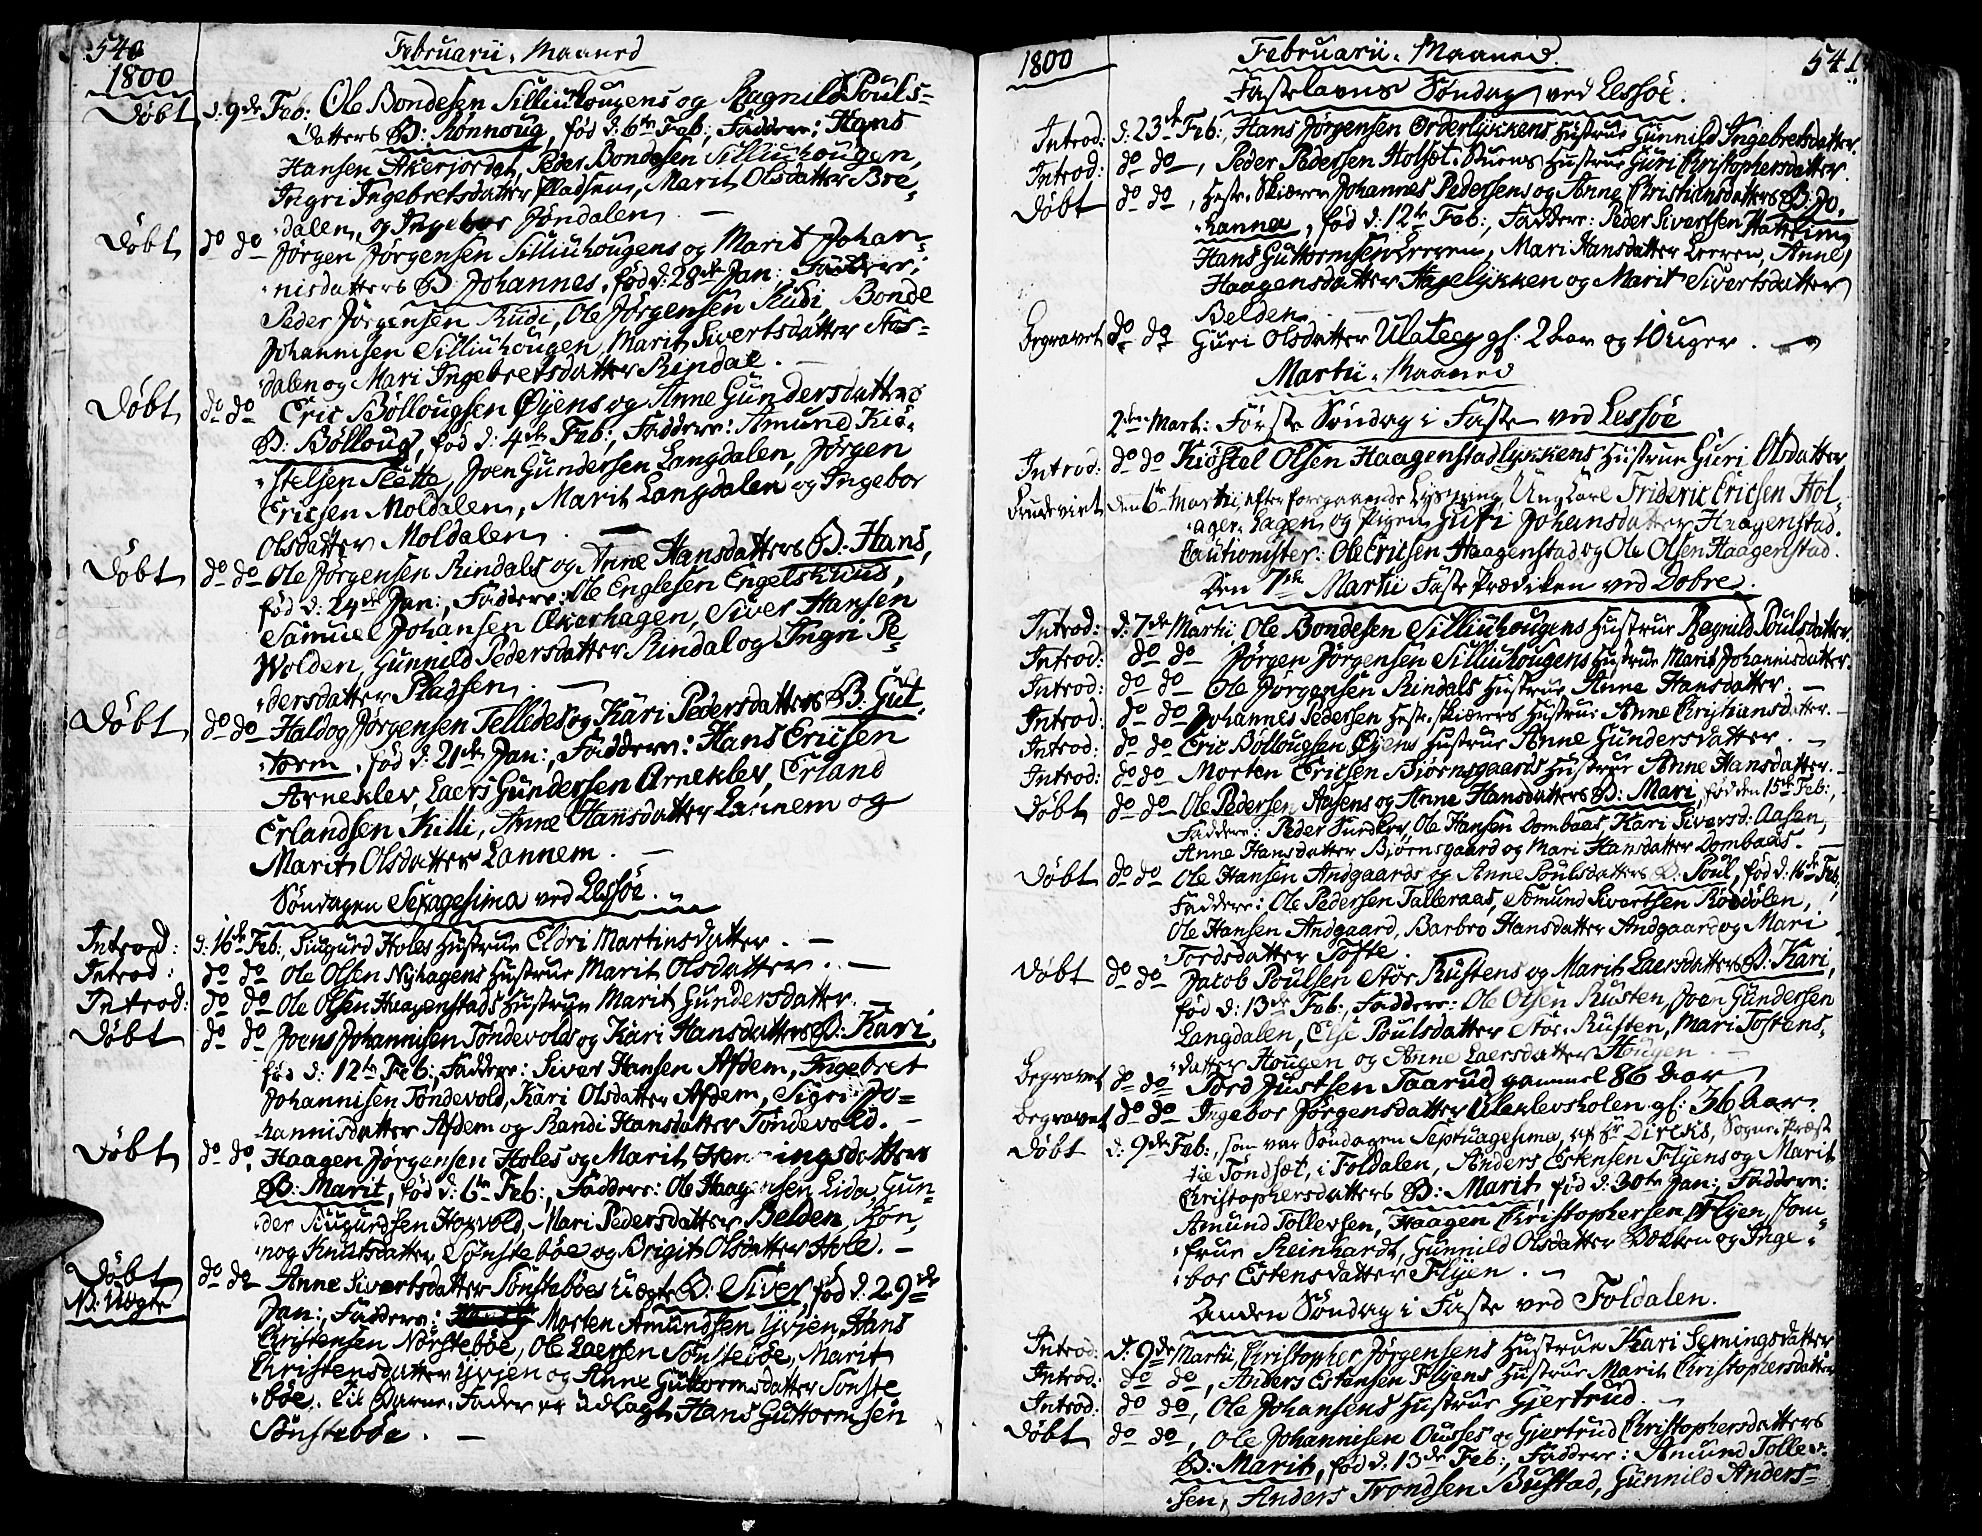 540
1800
Februarii Maaned
Døbt d: 9de Feb: Ole Bondesen Silliuhougens og Ragnild Pouls-
datters B: Rønnoug, fød d: 6te Feb:, Faddere: Hans
Hansen Akerjordet, Peder Bondesen Silliuhougen,
Ingri Ingebretsdatter Pladsen, Marit Olsdatter Bre-
dalen, og Ingebor Jøndalen. —
Døbt do do Jørgen Jørgensen Silliuhougens og Marit Johan-
nisdatters B: Johannes, fød d: 28de Jan: Faddere:
Peder Jørgensen Rudi, Ole Jørgensen Rudi, Bonde
Johannisen Silliuhougen, Marit Sivertsdatter
dalen og Mari Ingebretsdatter Rindal. —
Døbt do do Eric Bøllougsen Øyens og Anne Gundersdatters
B: Bølloug, fød d: 4de Feb:, Faddere: Amund Kiø-
stelsen Slette, Joen Gundersen Langdalen, Jørgen
Ericsen Moldalen, Marit Langdalen og Ingebor
Olsdatter Moldalen. —
Døbt do do Ole Jørgensen Rindals og Anne Hansdatters B: Hans,
fød d: 24de Jan:, Faddere: Ole Englesen Engelshuus,
Samuel Johansen Økerhagen, Siver Hansen
Wolden, Gunnild Pedersdatter Rindal og Ingri Pe-
dersdatter Pladsen. —
Døbt do do Haldog Jørgensen Telledes og Kari Pedersdatters B: Gut-
torm, fød d: 21de Jan:, Faddere: Hans Ericsen
Arneklev, Laers Gundersen Arneklev, Erland
Erlandsen Killi, Anne Hansdatter Lannem og
Marit Olsdatter Lannem. —
Søndagen Sexagesima ved Lessøe.
Introd: d: 16de Feb:, Siugurd Holes Hustrue Eldri Martinsdatter. —
Introd: do do Ole Olsen Nyhagens Hustrue Marit Olsdatter. —
Introd: do do Ole Olsen Haagenstads Hustrue Marit Gundersdatter. —
Døbt do do Joens Johannisen Tøndevolds og Kari Hansdatters B: Kari,
fød d: 12te Feb:, Faddere: Siver Hansen Afdem, Ingebret
Johannisen Tøndevold, Kari Olsdatter Afdem, Sigri Jo-
hannisdatter Afdem og Randi Hansdatter Tøndevold. —
Døbt do do, Haagen Jørgensen Holes og Marit Henningsdatters
B: Marit, fød d: 6te Feb:, Faddere: Ole Haagensen Lida, Gun-
der Siugurdsen Horvold, Mari Pedersdatter Belden, Røn-
nog Knutsdatter Sønstebøe og Brigit Olsdatter Hole. —
Døbt do do Anne Sivertsdatter Sønstebøes uægte B: Siver, fød d: 29de
N: Uægte
Jan:, Faddere: Morten Amundsen Yvjen, Hans
Christensen Norstebøe, Ole Laersen Sønstebøe, Marit
Christensdatter Yvjen og Anne Guttormsdatter Sønste-
bøe. Til Barne-Fader er udlagt Hans Guttormsen
Sønstebøe. —
1800
Februarii Maaned.
541
Fastelavns Søndag ved Lessøe.
Introd: d: 23de Feb:, Hans Jørgensen Orderlykkens Hustrue Gunnild Ingebretsdatter.
Introd: do do —, Peder Pedersen Holset-Stuens Hustrue Guri Christophersdatter.
Døbt do do, Heste-Skiærer Johannes Pedersens og Anne Christiansdatters B: Jo-
hanna, fød d: 12te Feb:, Faddere: Peder Sivertsen Hattling,
Hans Guttormsen Leeren, Mari Hansdatter Leeren, Anne
Haagensdatter Hagelykken og Marit Sivertsdatter
Belden.
Begravet do do Guri Olsdatter Ulateeg gl: 2 Aar og 10 Uger. —
Martii Maaned
2den Mart: Første Søndag i Faste ved Lessøe
Introd: do do Kiøstel Olsen Haagenstadlykkens Hustrue Guri Olsdatter
Brudeviet den 6te Martii, efter foregaaende Lysning, Ung Karl Frideric Ericsen Hol-
ager-Eagen og Pigen Guri Johansdatter Haagenstad.
Cautionister: Ole Ericsen Haagenstad og Ole Olsen Haagenstad.
Den 7de Martii Faste-Prædiken ved Dobre.
Introd: d: 7de Martii Ole Bondesen Silliuhougens Hustrue Ragnild Poulsdatter.
Introd: do do Jørgen Jørgensen Silliuhougens Hustrue Marit Johannisdatter.
Introd: do do Ole Jørgensen Rindals Hustrue Anne Hansdatter. —
Introd: do do Johannes Pedersen Heste-Skiærers Hustrue Anne Christiansdatter. —
Introd: do do Eric Bøllougsen Øyens Hustrue Anne Gundersdatter. —
Introd: do do Morten Ericsen Biørnsgaards Hustrue Anne Hansdatter. —
Døbt do do Ole Pedersen Aasens og Anne Hansdatters B: Mari, fød den 15de Feb:,
Faddere: Peder, Ole Hansen Dombaas, Kari Siversd: Aasen,
Anne Hansdatter Biørnsgaard og Mari Hansdatter Dombaas. —
Døbt do do Ole Hansen Andgaards og Anne Poulsdatters B: Poul, fød d: 16de Feb:,
Faddere: Ole Pedersen Talleraas, Somund Sivertsen Rødsølen,
Ole Hansen Andgaard, Barbro Hansdatter Andgaard og Mari
Tordsdatter Tofte.
Døbt do do Jacob Poulsen Stor-Rustens og Marit Laersdatters B: Kari,
fød d: 13de Feb:, Faddere: Ole Olsen Rusten, Joen Gundersen
Langdalen, Else Poulsdatter Stor-Rusten, Mari Tostens-
datter Hougen og Anne Laersdatter Hougen. —
Begravet do do Tord Justsen Taarud gammel 86 Aar
Begravet do do Ingebor Jørgensdatter Uleklevsholen gl: 36 Aar.
Døbt d: 9de Feb:, som var Søndagen Septuagesima, af Hr Dircks, Sogne-Præst
til Tøndset, i Foldalen, Anders Estensen Flyens og Marit
Christophersdatters B: Marit, fød d: 30te Jan:, Faddere:
Amund Tollevsen, Haagen Christophersen Flyen, Jom-
frue Reinhardt, Gunnild Olsdatter Bekken og Inge-
bor Estensdatter Flyen. —
Anden Søndag i Faste ved Foldalen.
Introd: d: 9de Martii, Christopher Jørgensens Hustrue Kari Semingsdatter
Introd: do do, Anders Estensen Flyens Hustrue Marit Christophersdatter
Introd: do do, Ole Johansens Hustrue Gjertrud. —
Døbt do do, Ole Johannisen Ousses og Gjertrud Christophersdatters
B: Marit, fød d: 13de Feb:, Faddere: Amund Tollev-
sen, Anders Trondsen Bustad, Gunnild Anders-